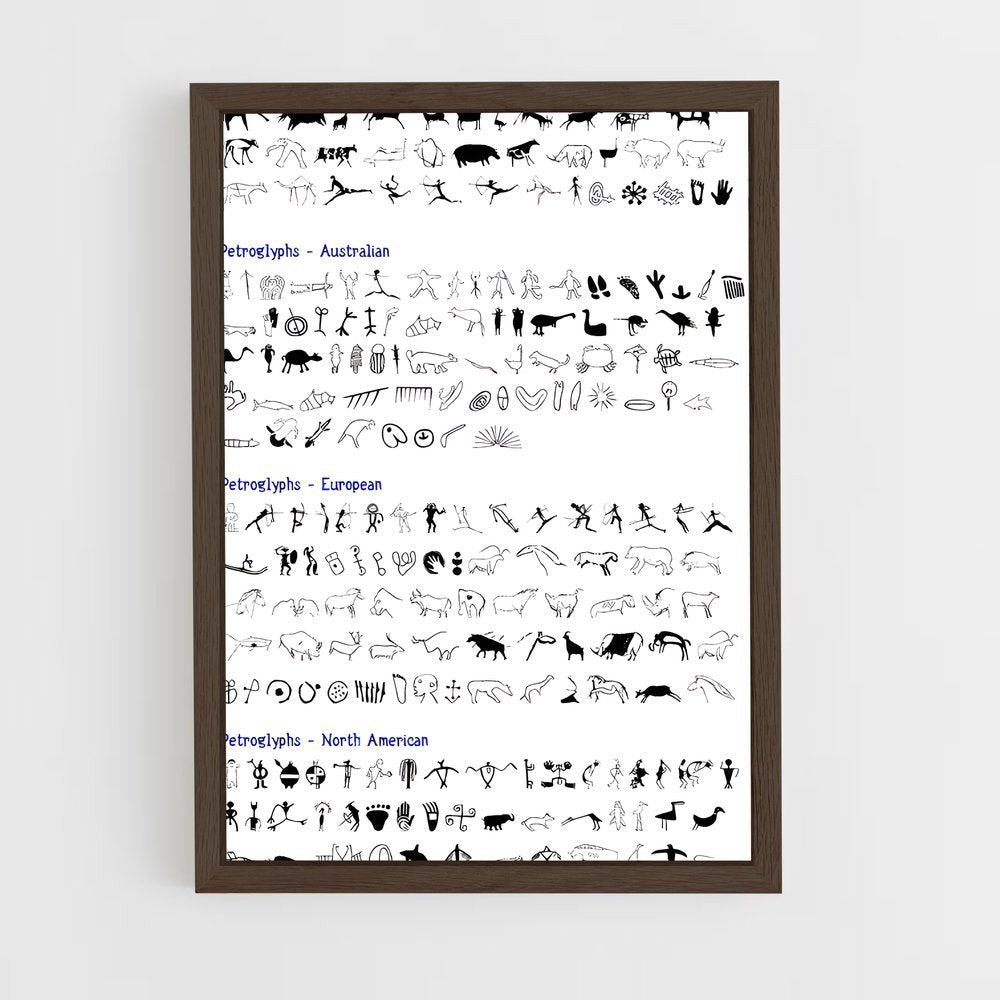 Petroglyphs - Australian
Petroglyphs - European
Petroglyphs - North American